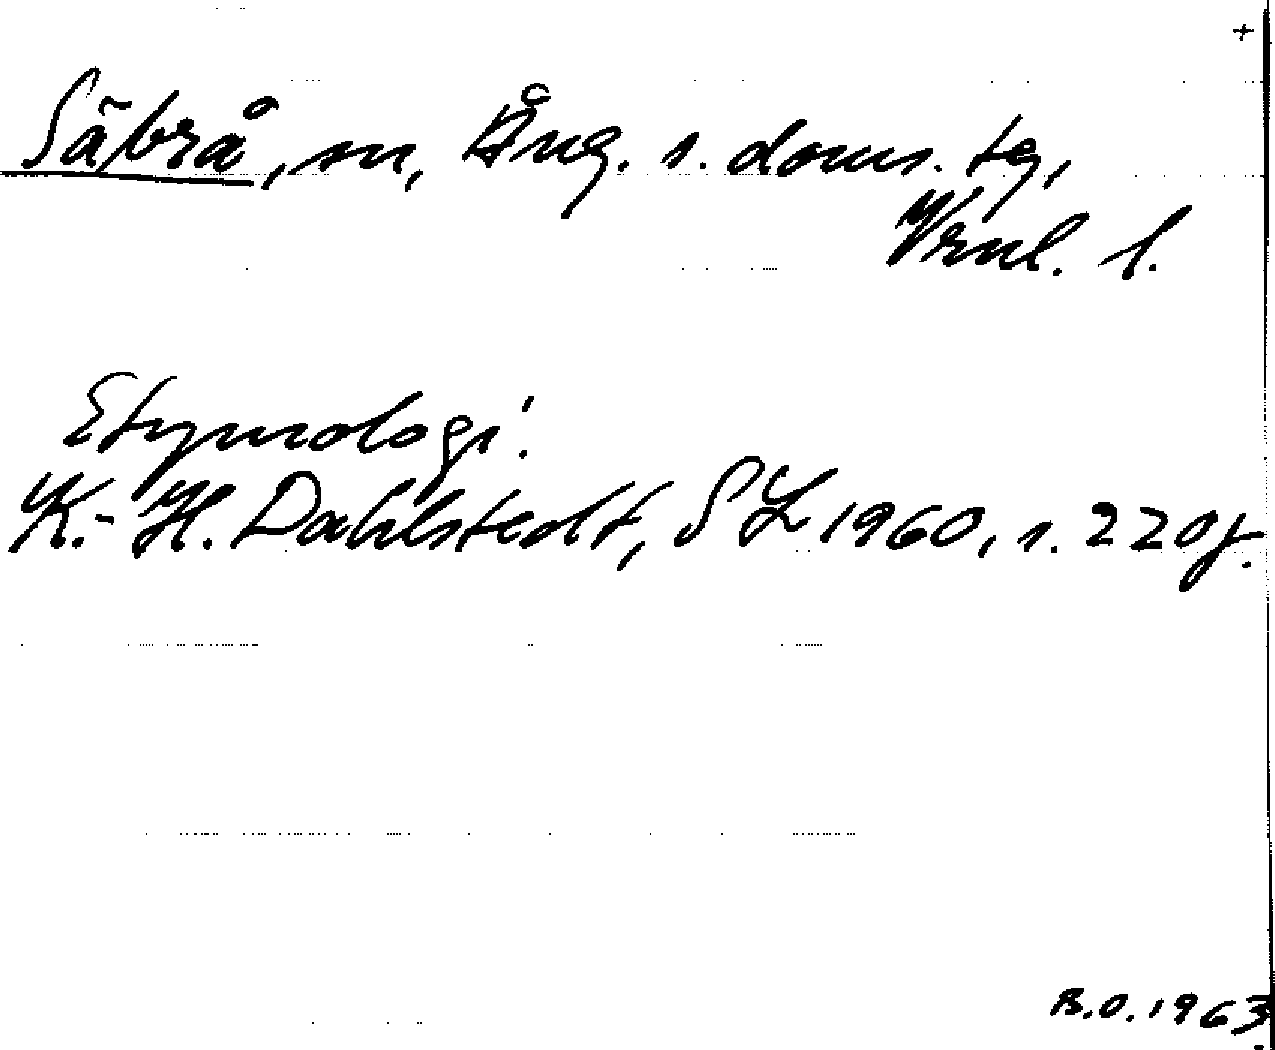 +
Säbrå, sn, Ång. s. doms. tg,
Vrnl. l.
Etymologi:
K.-H. Dahlstedt, SL 1960, s. 220f.
B.O. 1963